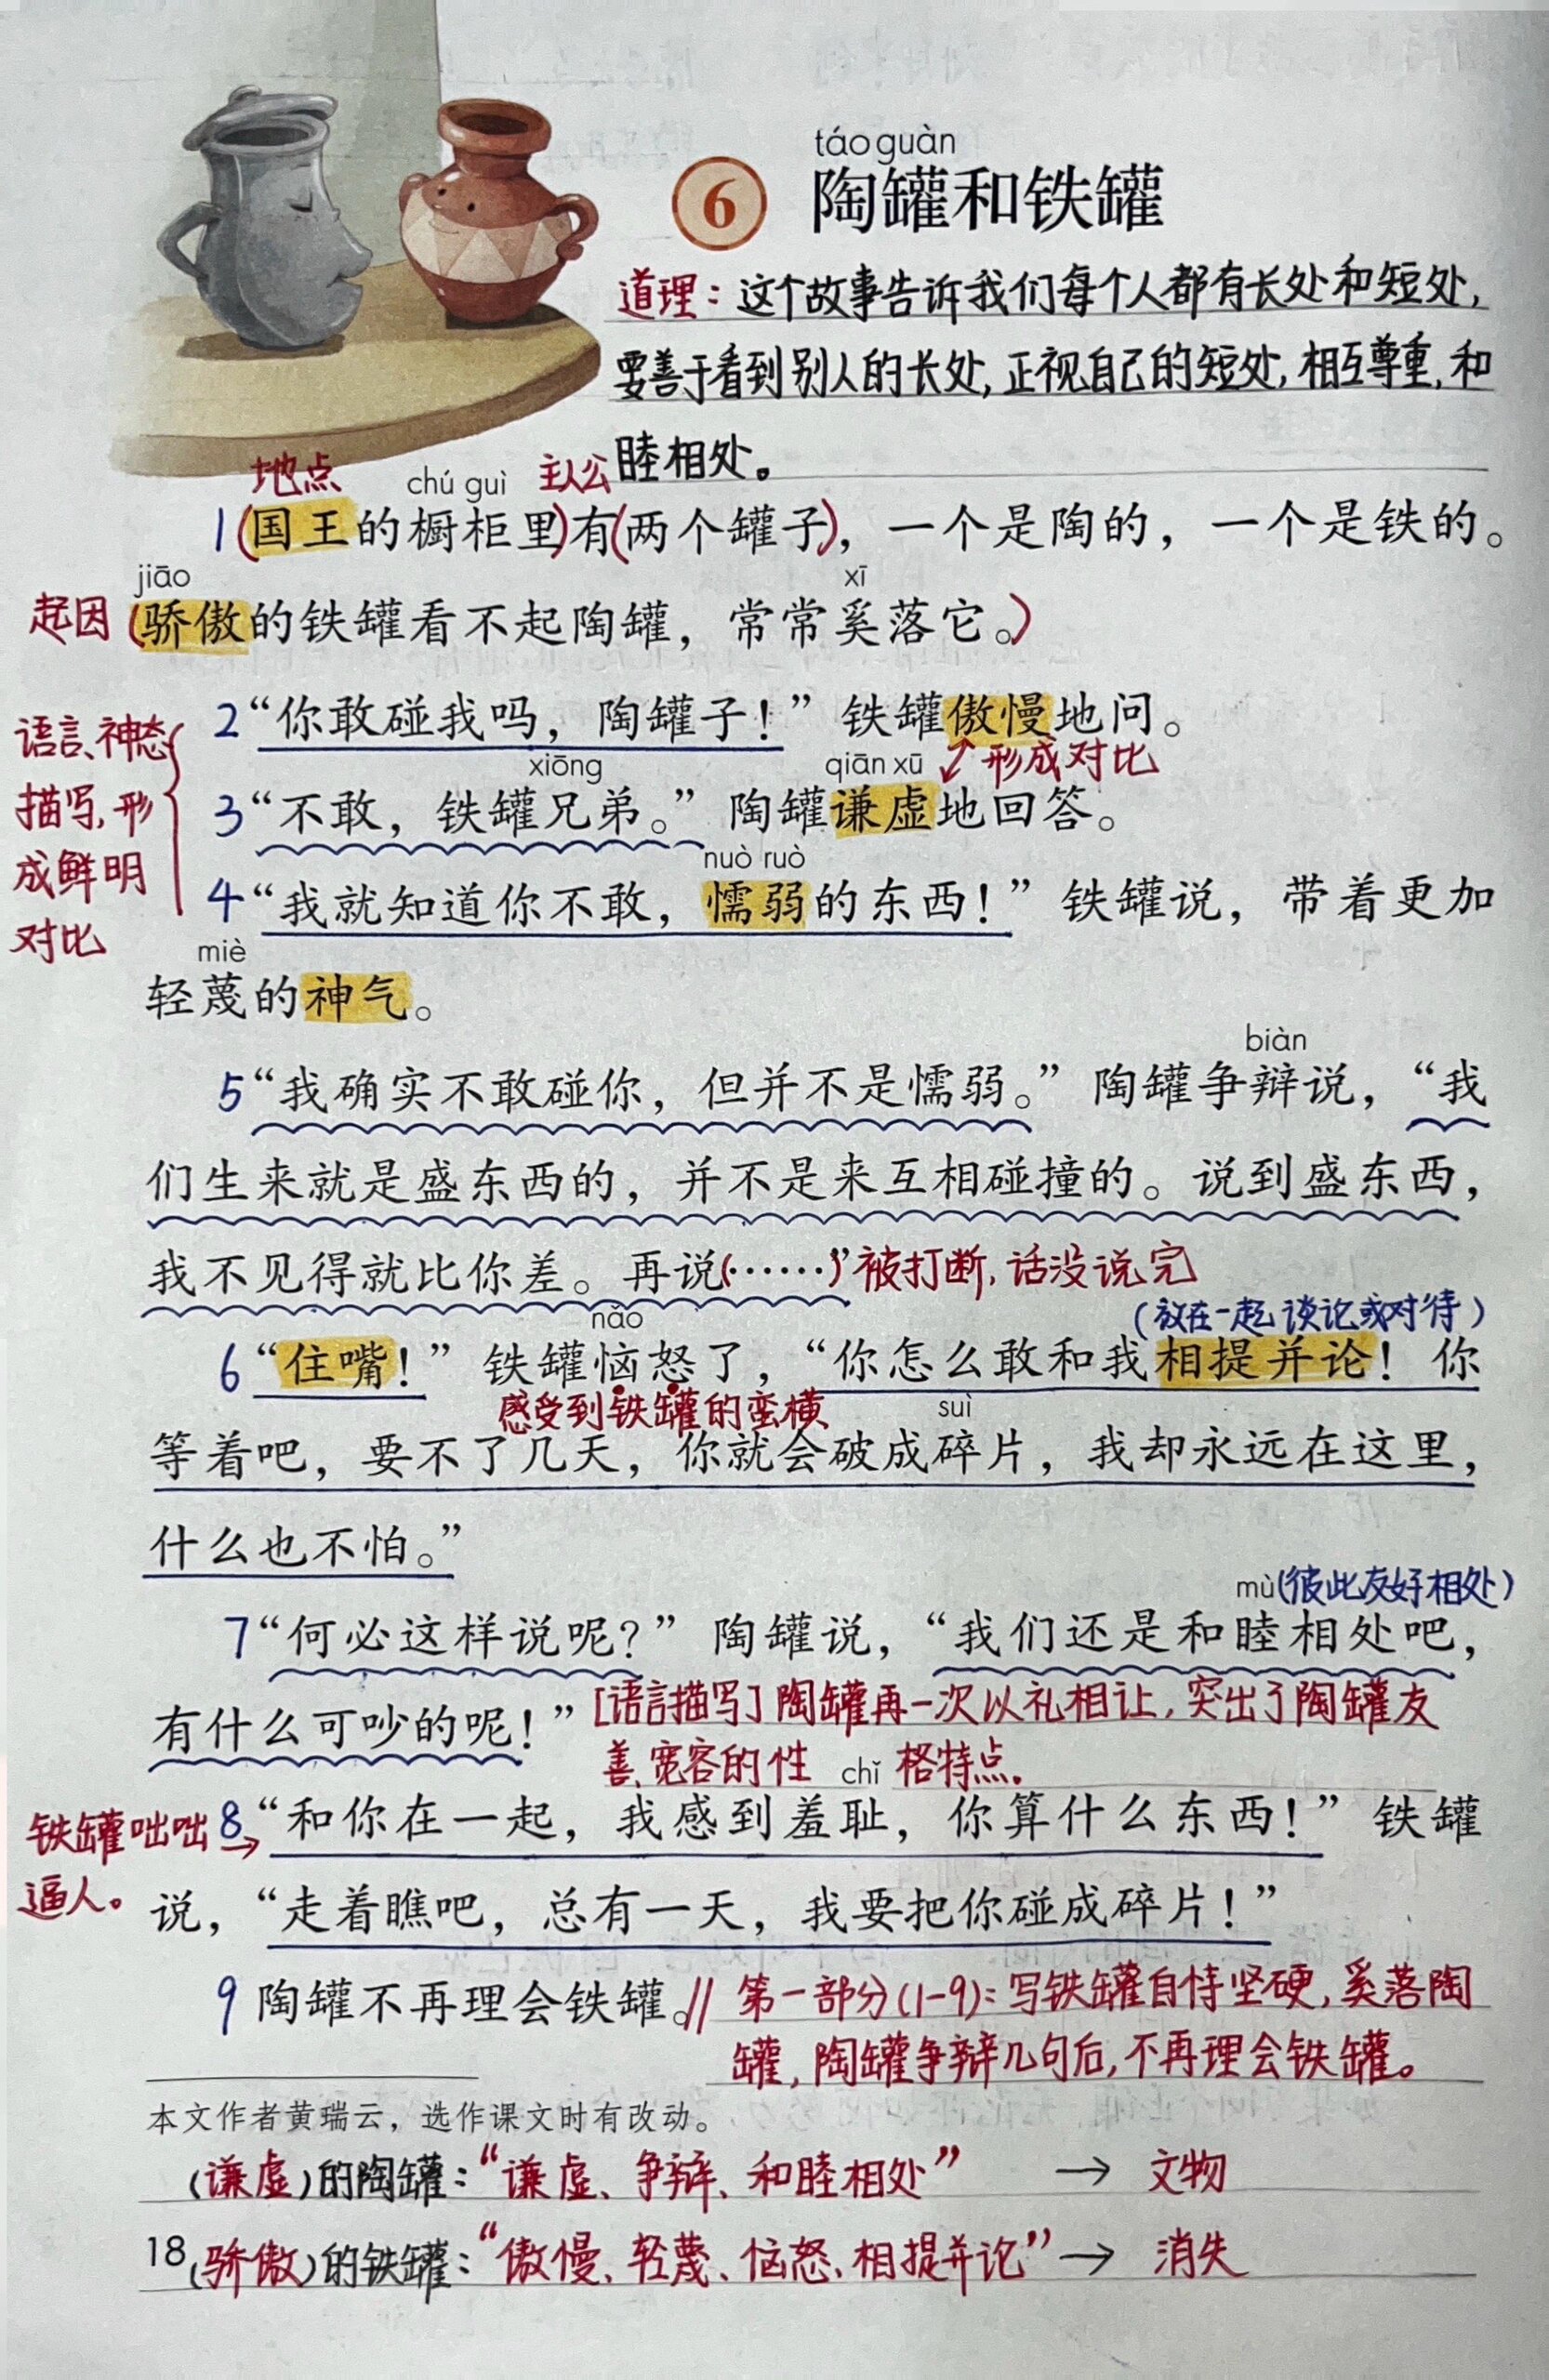 táo guàn
6 陶罐和铁罐
道理：这个故事告诉我们每个人都有长处和短处，
要善于看到别人的长处，正视自己的短处，相互尊重，和
睦相处。
地点 chú guì 主人公
1(国王的橱柜里)有(两个罐子)，一个是陶的，一个是铁的。
jiāo xī
起因 (骄傲的铁罐看不起陶罐，常常奚落它。)
语言、神态
描写，形
成鲜明
对比
2“你敢碰我吗，陶罐子！”铁罐傲慢地问。
xiōng qiān xū 形成对比
3“不敢，铁罐兄弟。”陶罐谦虚地回答。
nuò ruò
4“我就知道你不敢，懦弱的东西！”铁罐说，带着更加
miè
轻蔑的神气。
biàn
5“我确实不敢碰你，但并不是懦弱。”陶罐争辩说，“我
们生来就是盛东西的，并不是来互相碰撞的。说到盛东西，
我不见得就比你差。再说(……)”被打断，话没说完
nǎo (放在一起谈论或对待)
6“住嘴！”铁罐恼怒了，“你怎么敢和我相提并论！你
感受到铁罐的蛮横 suì
等着吧，要不了几天，你就会破成碎片，我却永远在这里，
什么也不怕。”
mù (彼此友好相处)
7“何必这样说呢？”陶罐说，“我们还是和睦相处吧，
有什么可吵的呢！”[语言描写]陶罐再一次以礼相让，突出了陶罐友
善、宽容的性 chǐ 格特点。
铁罐咄咄
逼人。
8“和你在一起，我感到羞耻，你算什么东西！”铁罐
说，“走着瞧吧，总有一天，我要把你碰成碎片！”
9 陶罐不再理会铁罐。// 第一部分(1-9)：写铁罐自恃坚硬，奚落陶
罐，陶罐争辩几句后，不再理会铁罐。
本文作者黄瑞云，选作课文时有改动。
(谦虚)的陶罐：“谦虚、争辩、和睦相处” → 文物
18 (骄傲)的铁罐：“傲慢、轻蔑、恼怒、相提并论” → 消失